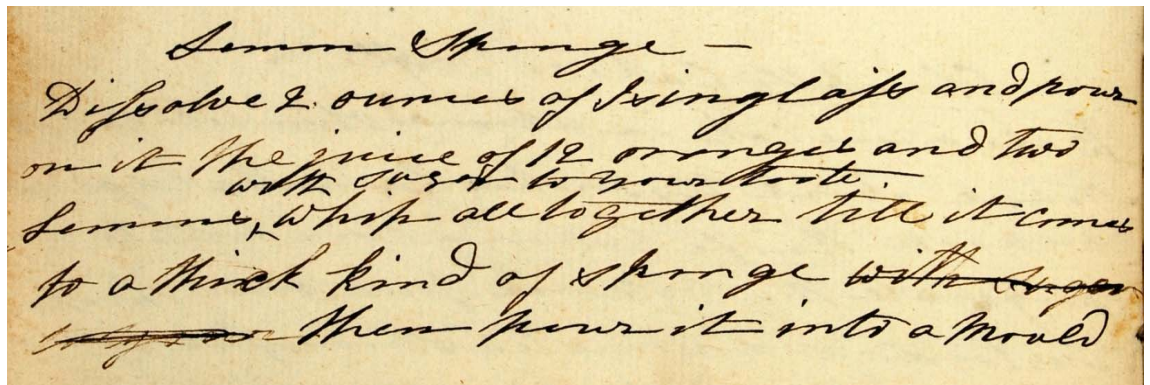 Lemon Sponge —
Dissolve 2 ounces of Isinglass and pour
on it the juice of 12 oranges and two
with sugar to your taste
Lemons, whip all together till it comes
to a thick kind of sponge with sugar
then pour it into a Mould